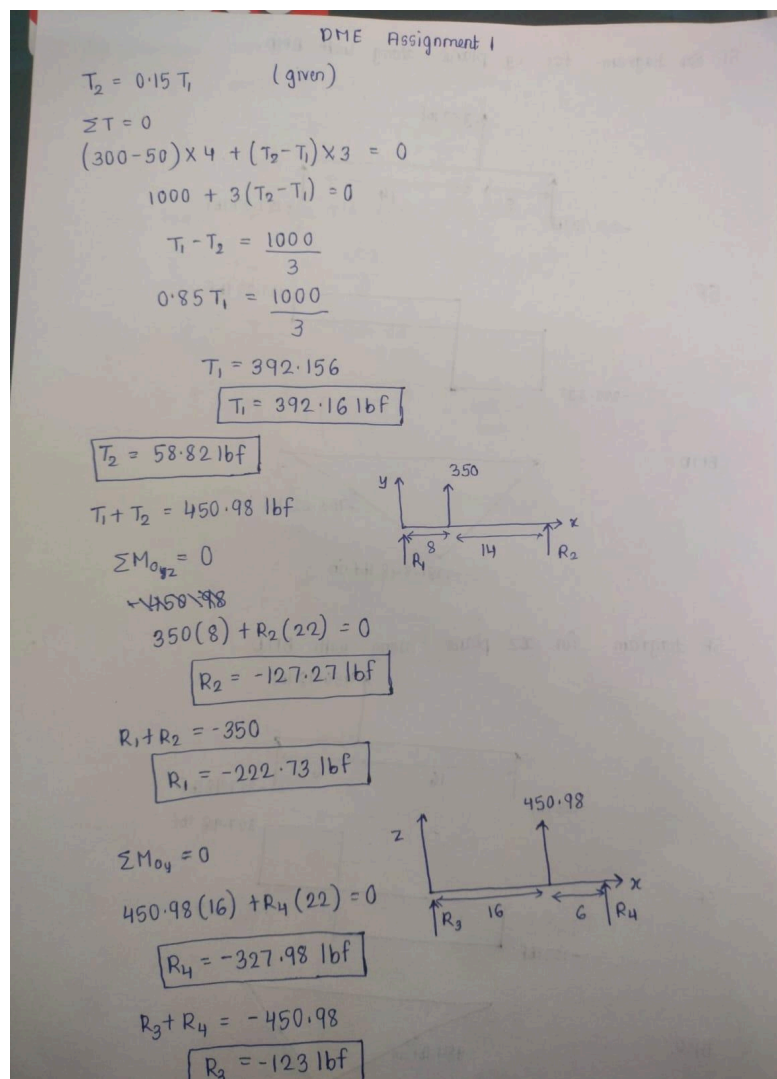 DME Assignment 1
T₂ = 0.15 T₁ (given)
ΣT = 0
(300-50)×4 + (T₂-T₁)×3 = 0
1000 + 3(T₂-T₁) = 0
T₁ - T₂ = 1000/3
0.85 T₁ = 1000/3
T₁ = 392.156
T₁ = 392.16 lbf
T₂ = 58.82 lbf
T₁ + T₂ = 450.98 lbf
y 350 x
R₁ 8 14 R₂
ΣM₀yz = 0
350(8) + R₂(22) = 0
R₂ = -127.27 lbf
R₁ + R₂ = -350
R₁ = -222.73 lbf
450.98
z x
R₃ 16 6 R₄
ΣMoy = 0
450.98(16) + R₄(22) = 0
R₄ = -327.98 lbf
R₃ + R₄ = -450.98
R₃ = -123 lbf